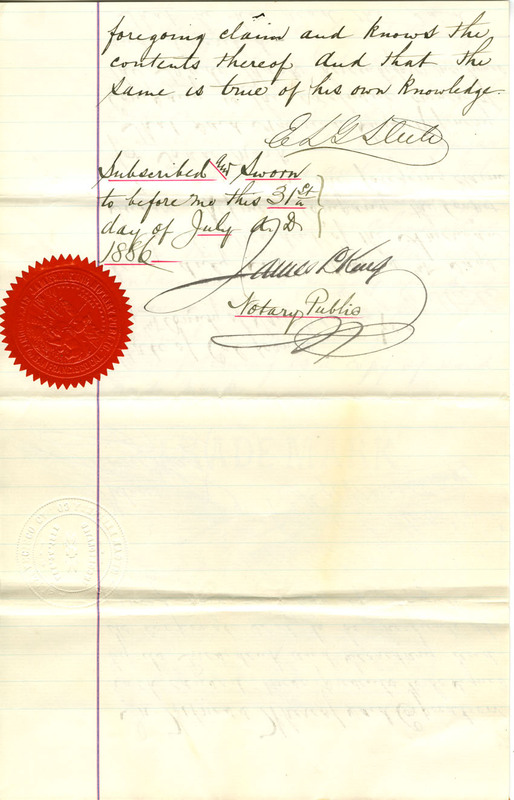 foregoing claim and knows the
contents thereof and that the
same is true of his own knowledge.
E L G Steele
Subscribed and Sworn
to before me this 31st
day of July A.D.
1886
James L King
Notary Public